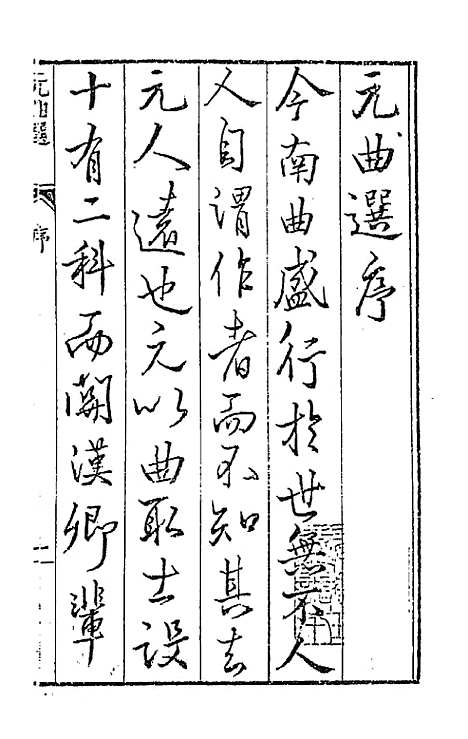 元曲選序
今南曲盛行於世無不人
人自謂作者而不知其去
元人遠也元以曲取士設
十有二科而關漢卿輩
元曲選 序 一